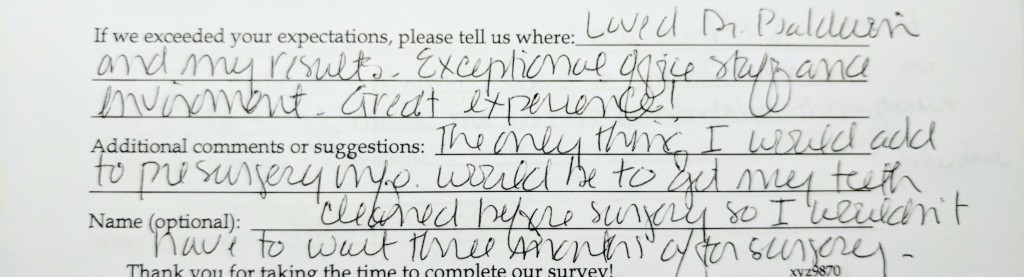 If we exceeded your expectations, please tell us where: Loved Dr. Baldwin
and my results. Exceptional office staff and
enviroment. Great experience!
Additional comments or suggestions: The only thing I would add
to presurgery info. would be to get my teeth
Name (optional): cleaned before surgery so I wouldn't
have to wait three months after surgery.
Thank you for taking the time to complete our survey! xvz9870